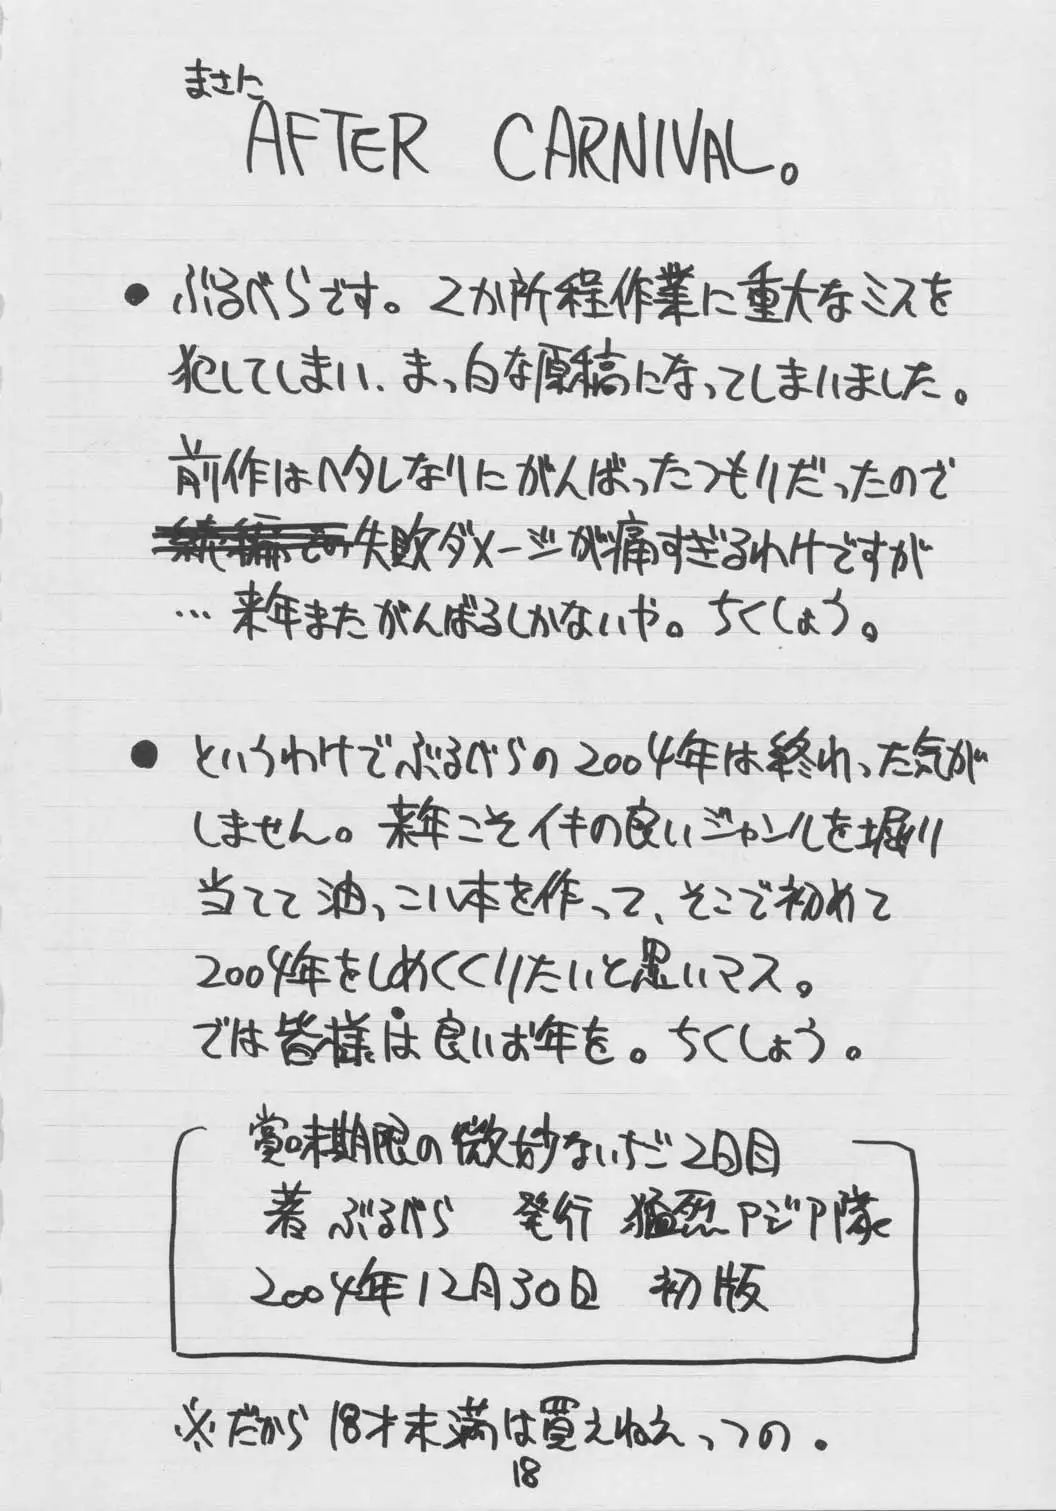 まさに
AFTER CARNIVAL。
● ぶるべらです。2か所程作業に重大なミスを
犯してしまい、まっ白な原稿になってしまいました。
前作はヘタレなりにがんばったつもりだったので
失敗ダメージが痛すぎるわけですが
…来年またがんばるしかないや。ちくしょう。
● というわけでぶるべらの2004年は終わった気が
しません。来年こそイキの良いジャンルを堀り
当てて油っこい本を作って、そこで初めて
2004年をしめくくりたいと思いマス。
では皆様は良いお年を。ちくしょう。
賞味期限の微妙ないちご2日目
著 ぶるべら 発行 猛烈アジア隊
2004年12月30日 初版
※だから18才未満は買えねえっつの。
18